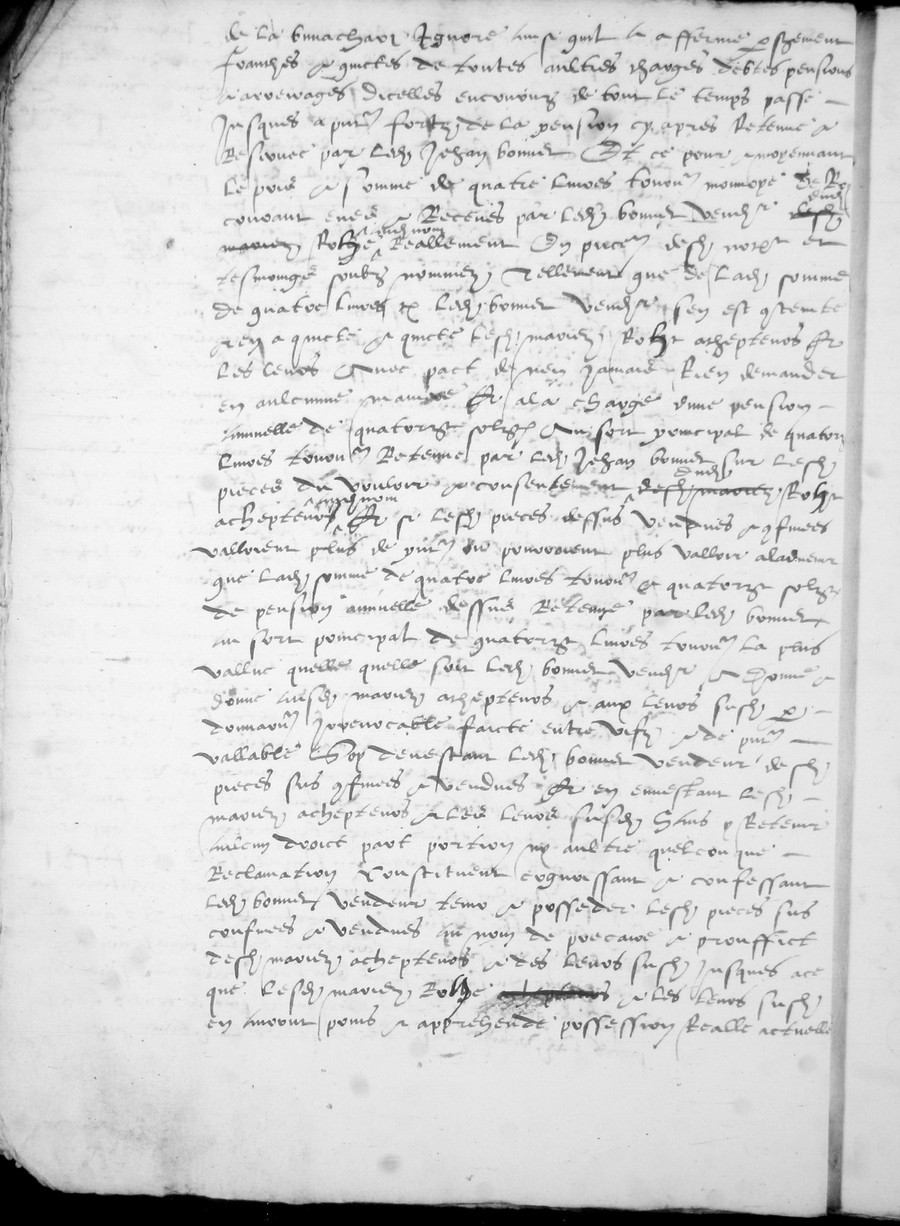 de la ignore ainsi quil a afferme
franches & quictes de toutes aultres charges debtes pensions
& arreraiges dicelles encouruz de tout le temps passe
Jusques a pnt fors de la pension cy apres Retenue &
Reservee par led Jehan bonnet Et ce pour & moyennant
le pris & somme de quatre livres tourn monnoye de Roy
courant eues & Receues par led bonnet vend desd
Reallement En pieces desd not et
tesmoings soubz nommez Tellement que de lad somme
de quatre livres tz led bonnet vend sen est contente
& en a quicte & quicte lesd mariez achepteurs Et
les leurs Avec pact de nen jamais Rien demander
en aulcune maniere Et a la charge dune pension
annuelle de quatorze solz Au sort principal de quatorze
livres tourn Retenue par led Jehan bonnet sur lesd
pieces du vouloir & consentement desd mariez
achepteurs Et si lesd pieces dessus vendues & confinees
valloient plus de pnt ou pourroient plus valloir aladvenir
que lad somme de quatre livres tourn & quatorze solz
de pension annuelle dessus Retenue par led bonnet
au sort principal de quatorze livres tourn la plus
vallue quelle quelle soit led bonnet vend a donne &
donne ausd mariez achepteurs & aux leurs susd par
donnation Irrevocable faicte entre vifz & de pnt
vallable Soy devestant led bonnet vendeur desd
pieces sus confinees & vendues Et en envestant lesd
mariez achepteurs & les leurs susd Sans y Retenir
aulcun droict part portion ny aultre quelconque
Reclamation Constituent cognoissant & confessant
led bonnet vendeur tenir & posseder lesd pieces sus
confinees & vendues au nom de precaire & prouffict
desd mariez achepteurs & des leurs susd Jusques ace
que lesd mariez & les leurs susd
en auront prins & apprehende possession Realle actuelle